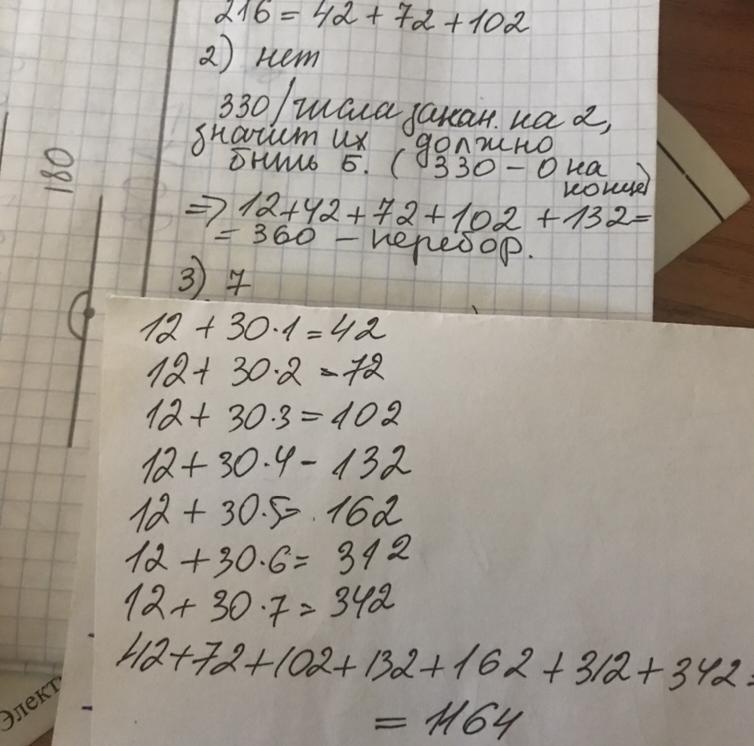 216 = 42 + 72 + 102
2) нет
330 / числа закан. на 2,
значит их должно
быть 5. ( 330 - 0 на
конце)
=> 12+42+72+102 +132=
= 360 - перебор.
180
3) 7
12 + 30·1 = 42
12+ 30·2 = 72
12+ 30·3 = 102
12+ 30·4 - 132
12 + 30·5= 162
12 + 30·6= 312
12+ 30·7 = 342
42+72+102+132+162+312+342=
= 1164
Элект